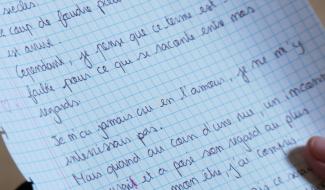 siècles.
le coup de foudre
est avant.
Cependant, je pense que ce terme est
faible pour ce qui se raconte entre nos
regards.
Je n'ai jamais cru en l'amour, je ne m'y
intéressais pas.
Mais quand au coin d'une rue, un
et a posé son regard au plus
mon être, j'ai compris